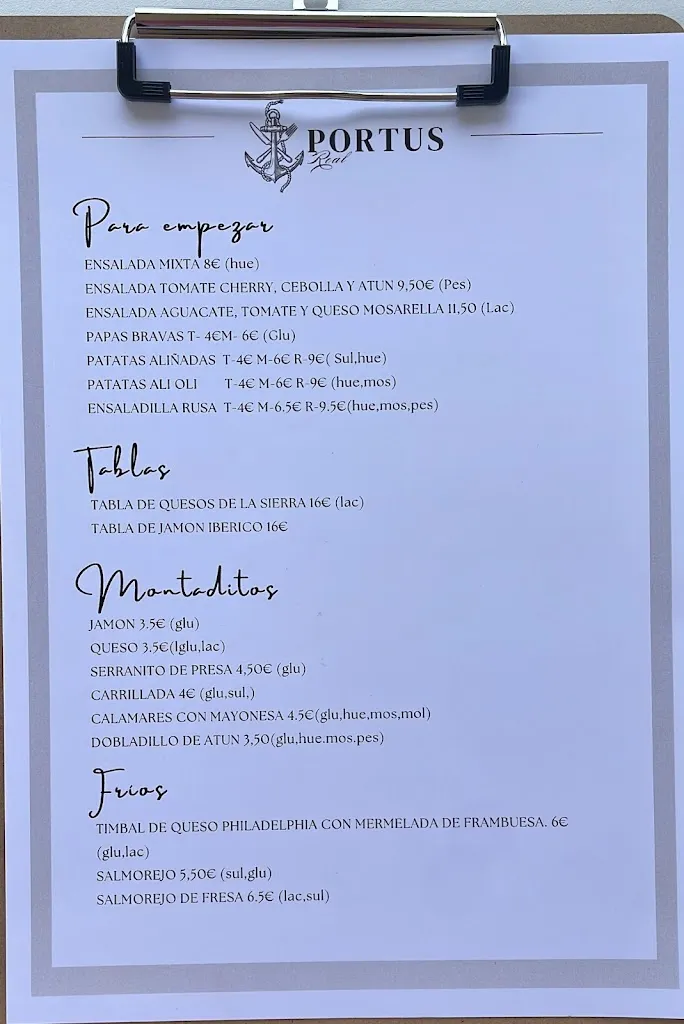 PORTUS
Real
Para empezar
ENSALADA MIXTA 8€ (hue)
ENSALADA TOMATE CHERRY, CEBOLLA Y ATUN 9,50€ (Pes)
ENSALADA AGUACATE, TOMATE Y QUESO MOSARELLA 11,50 (Lac)
PAPAS BRAVAS T- 4€M- 6€ (Glu)
PATATAS ALIÑADAS T-4€ M-6€ R-9€( Sul,hue)
PATATAS ALI OLI T-4€ M-6€ R-9€ (hue,mos)
ENSALADILLA RUSA T-4€ M-6.5€ R-9.5€(hue,mos,pes)
Tablas
TABLA DE QUESOS DE LA SIERRA 16€ (lac)
TABLA DE JAMON IBERICO 16€
Montaditos
JAMON 3.5€ (glu)
QUESO 3.5€(lglu,lac)
SERRANITO DE PRESA 4,50€ (glu)
CARRILLADA 4€ (glu,sul,)
CALAMARES CON MAYONESA 4.5€(glu,hue,mos,mol)
DOBLADILLO DE ATUN 3,50(glu,hue.mos.pes)
Frios
TIMBAL DE QUESO PHILADELPHIA CON MERMELADA DE FRAMBUESA. 6€
(glu,lac)
SALMOREJO 5,50€ (sul,glu)
SALMOREJO DE FRESA 6.5€ (lac,sul)